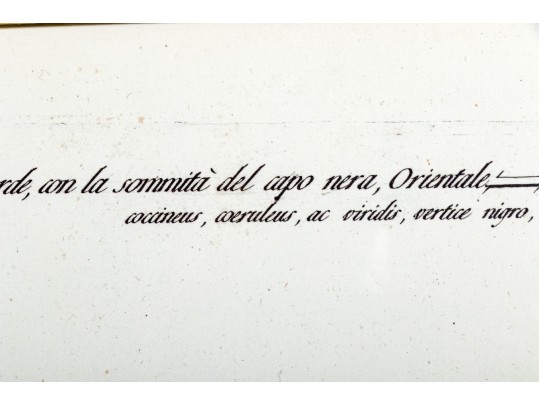 rde, con la sommità del capo nera, Orientale,
coccineus, coeruleus, ac viridis, vertice nigro,